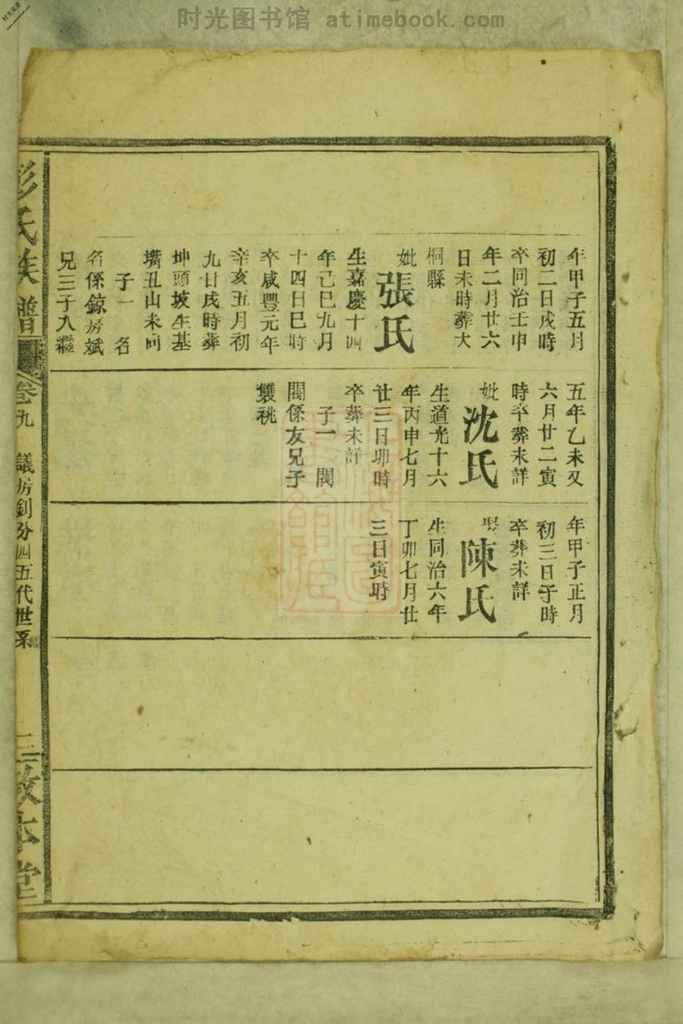 时光图书馆 atimebook.com
年甲子五月
初二日戌時
卒同治壬申
年二月廿六
日未時葬大
桐縣
妣張氏
生嘉慶十四
年己巳九月
十四日巳時
卒咸豐元年
辛亥五月初
九廿戌時葬
坤頭坡生基
壪丑山未向
子一 名
名係錦房斌
兄三子入繼
五年乙未又
六月廿二寅
時卒葬未詳
妣沈氏
生道光十六
年丙申七月
廿三日卯時
卒葬未詳
子一 閔
閔係友兄子
雙祧
年甲子正月
初三日子時
卒葬未詳
娶陳氏
生同治六年
丁卯七月廿
三日寅時
彭氏族譜
卷九 議房釗分四五代世系
敦本堂